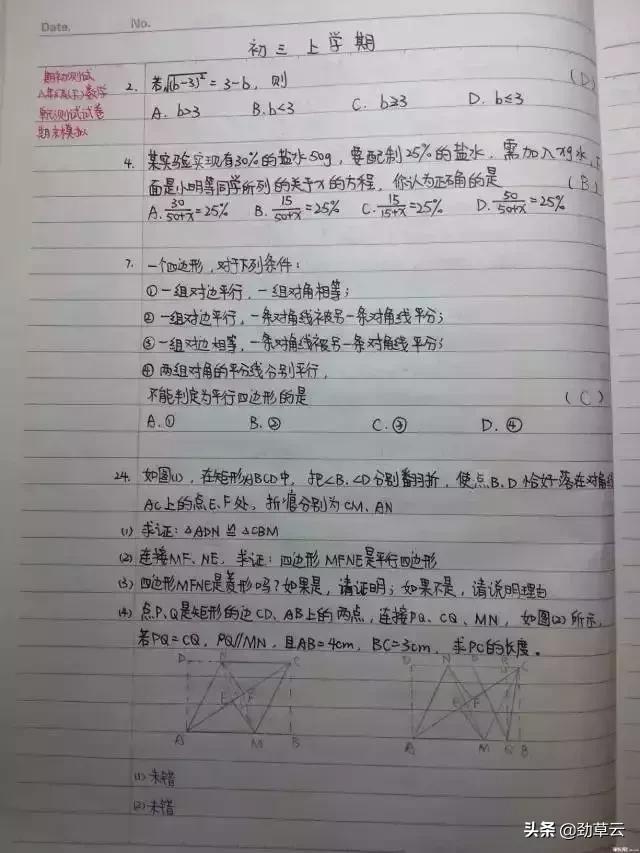 Date.
No.
初三上学期
期初测试
数学
单元测试试卷
期末模拟
2. 若√(b-3)² = 3-b, 则 (D)
A. b>3 B. b<3 C. b≥3 D. b≤3
4. 某实验室现有30%的盐水50g, 要配制25%的盐水, 需加入xg水, 下
面是小明等同学所列的关于x的方程, 你认为正确的是 (B)
A. 30/(50+x)=25% B. 15/(50+x)=25% C. 15/(15+x)=25% D. 50/(50+x)=25%
7. 一个四边形, 对于下列条件:
①一组对边平行, 一组对角相等;
②一组对边平行, 一条对角线被另一条对角线平分;
③一组对边相等, 一条对角线被另一条对角线平分;
④两组对角的平分线分别平行,
不能判定为平行四边形的是 (C)
A. ① B. ② C. ③ D. ④
24. 如图(1), 在矩形ABCD中, 把∠B、∠D分别翻折, 使点B、D恰好落在对角线
AC上的点E、F处, 折痕分别为CM、AN
(1) 求证: △ADN≌△CBM
(2) 连接MF、NE, 求证: 四边形MFNE是平行四边形
(3) 四边形MFNE是菱形吗? 如果是, 请证明; 如果不是, 请说明理由
(4) 点P、Q是矩形的边CD、AB上的两点, 连接PQ、CQ、MN, 如图(2)所示,
若PQ=CQ, PQ//MN, 且AB=4cm, BC=3cm, 求PC的长度。
D C D N C
E F E F
A M B A M Q B
(1) 未错
(2) 未错
头条 @劲草云